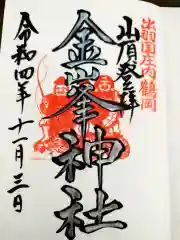 出羽國庄内鶴岡
山頂登拝
金峯神社
令和四年十一月三日